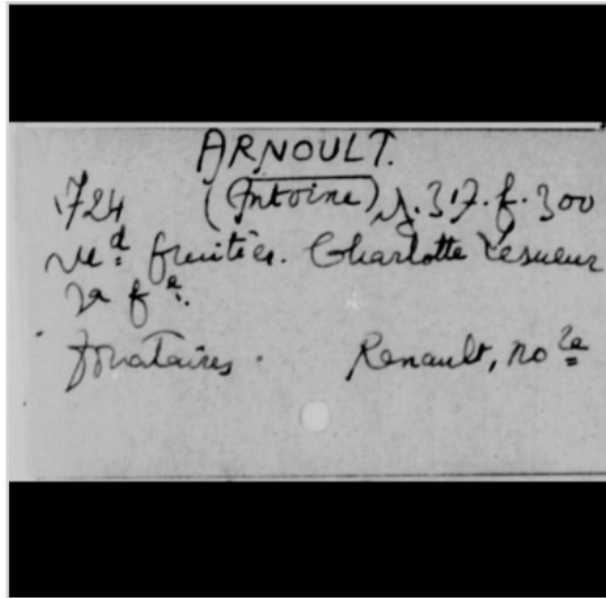 ARNOULT.
1724 (Antoine) y. 317. f. 300
Md fruitier. Charlotte Lesueur
sa fe.
Donataires. Renault, nore